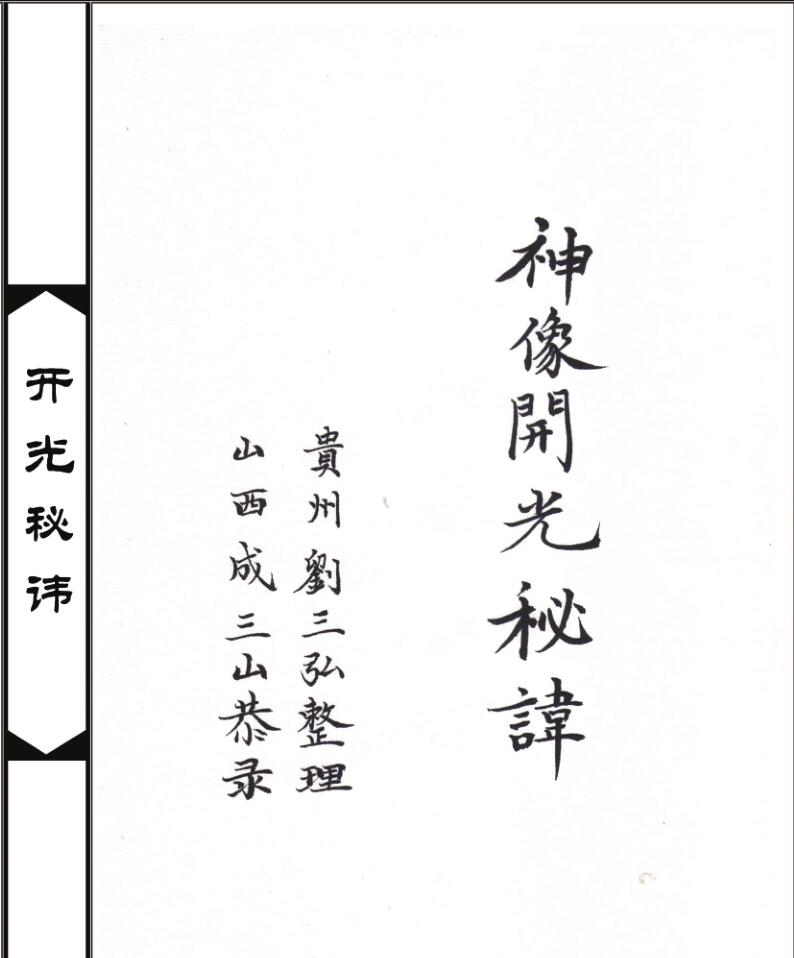 神像開光秘諱
貴州劉三弘整理
山西成三山恭录
开光秘讳